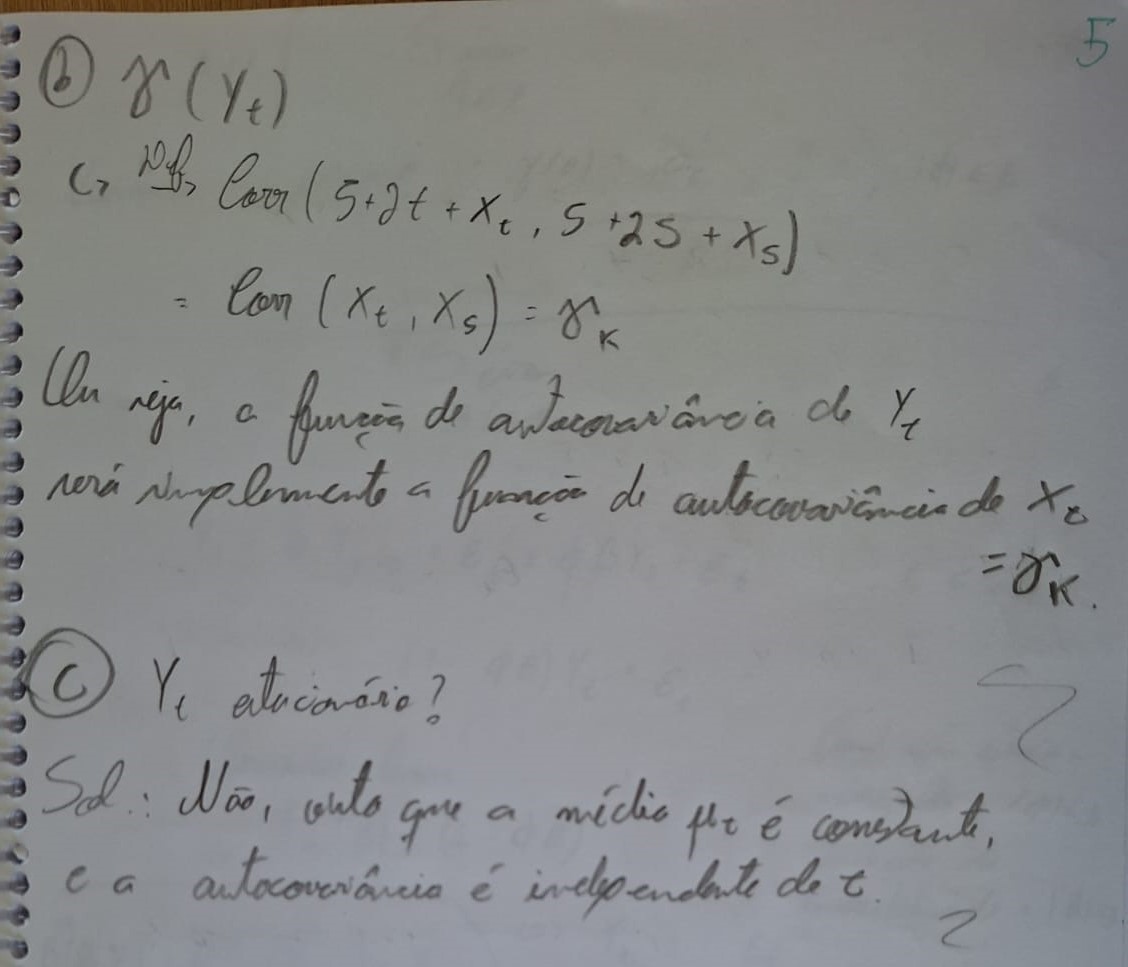 5
b γ(Y_t)
↳ Def, Corr(5+2t + X_t, 5 +2S + X_S)
= Corr (X_t, X_s) = γ_K
Ou seja, a função de autocovariância de Y_t
será simplesmente a função de autocovariância de X_t
= γ_K.
c Y_t estacionário?
Sol.: Não, visto que a média μ_t é constante,
e a autocovariância é independente de t.